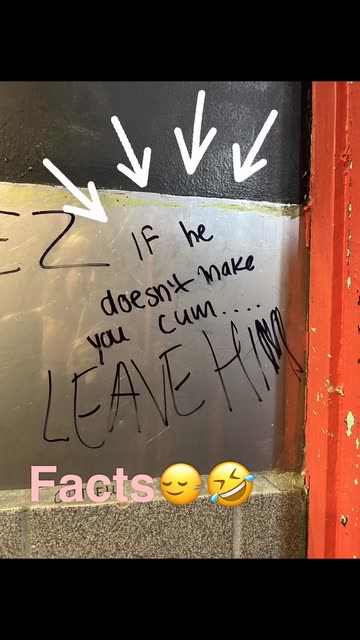 EZ
IF he
doesn't make
you cum....
LEAVE HIM
Facts😌🤣